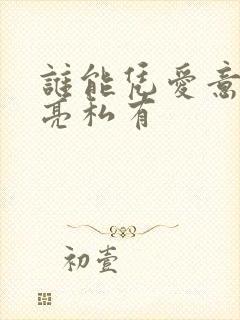 誰能凭愛意
亮私有
初壹